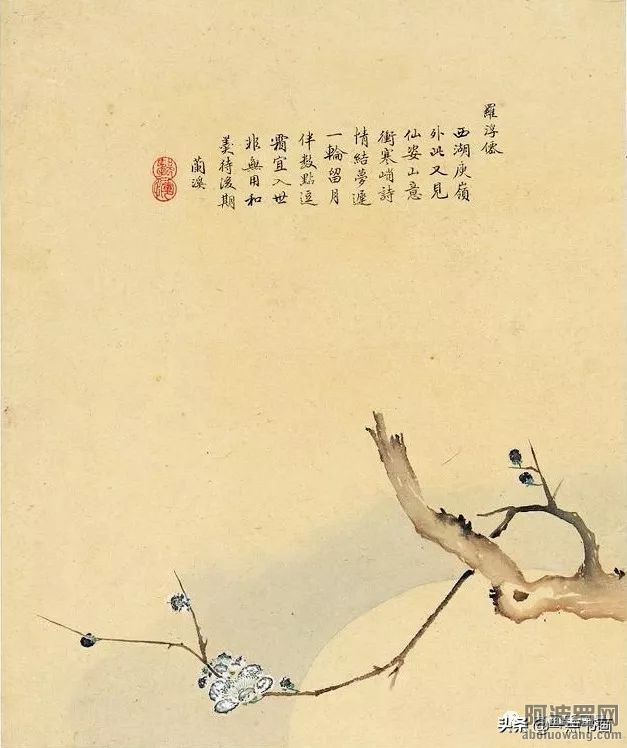 羅浮僊
西湖庾嶺
外此又見
仙姿山意
衝寒峭詩
情結夢遲
一輪留月
伴數點逗
霜宜入世
非無用和
羹待後期
蘭溪
阿波罗网
头条
aboluowang.com